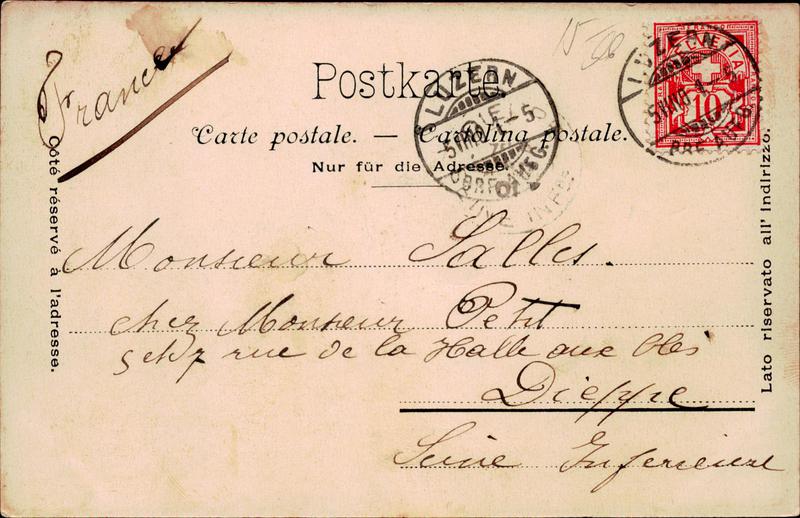 France
Postkarte.
Carte postale. — Cartolina postale.
Nur für die Adresse.
Côté réservé à l'adresse.
Lato riservato all' indirizzo.
LUZERN
LUZERN
HELVETIA
10
Monsieur Salles.
chez Monsieur Petit
5 et 7 rue de la Halle aux blés
Dieppe
Seine Inferieure